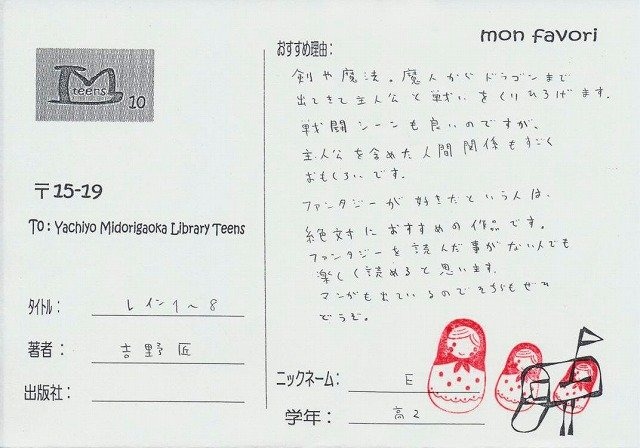 mon favori
TM
teens
10
〒15-19
To: Yachiyo Midorigaoka Library Teens
タイトル: レイン1~8
著者: 吉野 匠
出版社:
おすすめ理由:
剣や魔法。魔人からドラゴンまで
出てきて主人公と戦いをくりひろげます。
戦闘シーンも良いのですが、
主人公を含めた人間関係もすごく
おもしろいです。
ファンタジーが好きだという人は、
絶対におすすめの作品です。
ファンタジーを読んだ事がない人でも
楽しく読めると思います。
マンガも出ているのでそちらもぜひ
どうぞ。
ニックネーム: E
学年: 高2